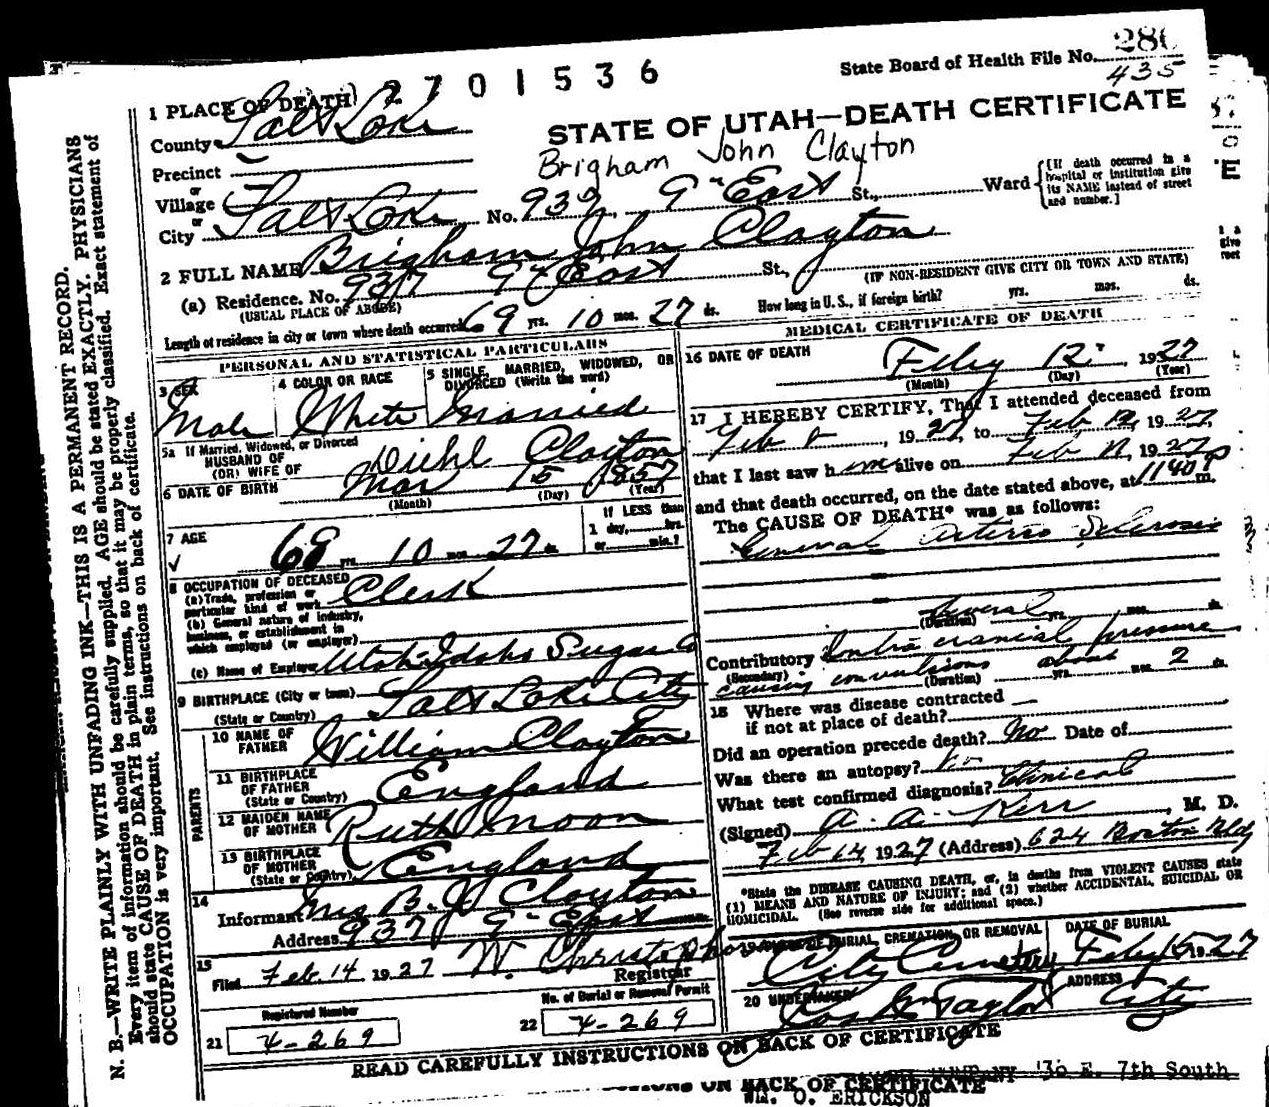 2701536
State Board of Health File No. 280
435
1 PLACE OF DEATH
STATE OF UTAH—DEATH CERTIFICATE
County Salt Lake
Brigham John Clayton
Precinct
or
Village
or
City Salt Lake No. 937 9" East St., Ward
[If death occurred in a
hospital or institution give
its NAME instead of street
and number.]
2 FULL NAME Brigham John Clayton
(a) Residence. No. 937 9th East St.,
(USUAL PLACE OF ABODE)
(IF NON-RESIDENT GIVE CITY OR TOWN AND STATE)
Length of residence in city or town where death occurred 69 yrs. 10 mos. 27 ds. How long in U. S., if foreign birth? yrs. mos. ds.
PERSONAL AND STATISTICAL PARTICULARS
3 SEX
Male
4 COLOR OR RACE
White
5 SINGLE, MARRIED, WIDOWED, OR
DIVORCED (Write the word)
Married
5a If Married, Widowed, or Divorced
HUSBAND OF
(OR) WIFE OF
Diehl Clayton
6 DATE OF BIRTH Mar 15 1857
(Month) (Day) (Year)
7 AGE
69 yrs. 10 mos. 27 ds.
If LESS than
1 day, hrs.
or min.?
8 OCCUPATION OF DECEASED
(a) Trade, profession or
particular kind of work Clerk
(b) General nature of industry,
business, or establishment in
which employed (or employer)
(c) Name of Employer Utah-Idaho Sugar Co
9 BIRTHPLACE (City or town) Salt Lake City
(State or Country)
PARENTS
10 NAME OF
FATHER William Clayton
11 BIRTHPLACE
OF FATHER England
(State or Country)
12 MAIDEN NAME
OF MOTHER Ruth Moon
13 BIRTHPLACE
OF MOTHER England
(State or Country)
14
Informant Mrs B. J Clayton
Address 937 9" East
15
Filed Feb. 14 1927 W. Christopherson
Registrar
Registered Number
21 4-269
No. of Burial or Removal Permit
22 4-269
MEDICAL CERTIFICATE OF DEATH
16 DATE OF DEATH
Feby 12" 1927
(Month) (Day) (Year)
17 I HEREBY CERTIFY, That I attended deceased from
Feb , 1927, to Feb 12, 1927,
that I last saw him alive on Feb 12, 1927
and that death occurred, on the date stated above, at 1140 P m.
The CAUSE OF DEATH* was as follows:
General Arterio Sclerosis
Several
(Duration) yrs. mos. ds.
Contributory Intra cranial pressure
(Secondary) causing convulsions about 2 ds.
(Duration) yrs. mos.
18 Where was disease contracted
if not at place of death?
Did an operation precede death? No Date of
Was there an autopsy? No
What test confirmed diagnosis? Clinical
(Signed) A. A. Kerr, M. D.
Feb 14, 1927 (Address) 624 Boston Bldg
*State the DISEASE CAUSING DEATH, or, in deaths from VIOLENT CAUSES state
(1) MEANS AND NATURE OF INJURY; and (2) whether ACCIDENTAL, SUICIDAL OR
HOMICIDAL. (See reverse side for additional space.)
19 PLACE OF BURIAL, CREMATION, OR REMOVAL
City Cemetery
DATE OF BURIAL
Feby 15 1927
20 UNDERTAKER
Taylor
ADDRESS
City
READ CAREFULLY INSTRUCTIONS ON BACK OF CERTIFICATE
ON BACK OF CERTIFICATE
COMPANY 36 E. 7th South
WM. O. ERICKSON
N. B.—WRITE PLAINLY WITH UNFADING INK—THIS IS A PERMANENT RECORD.
Every item of information should be carefully supplied. AGE should be stated EXACTLY. PHYSICIANS
should state CAUSE OF DEATH in plain terms, so that it may be properly classified. Exact statement of
OCCUPATION is very important. See instructions on back of certificate.